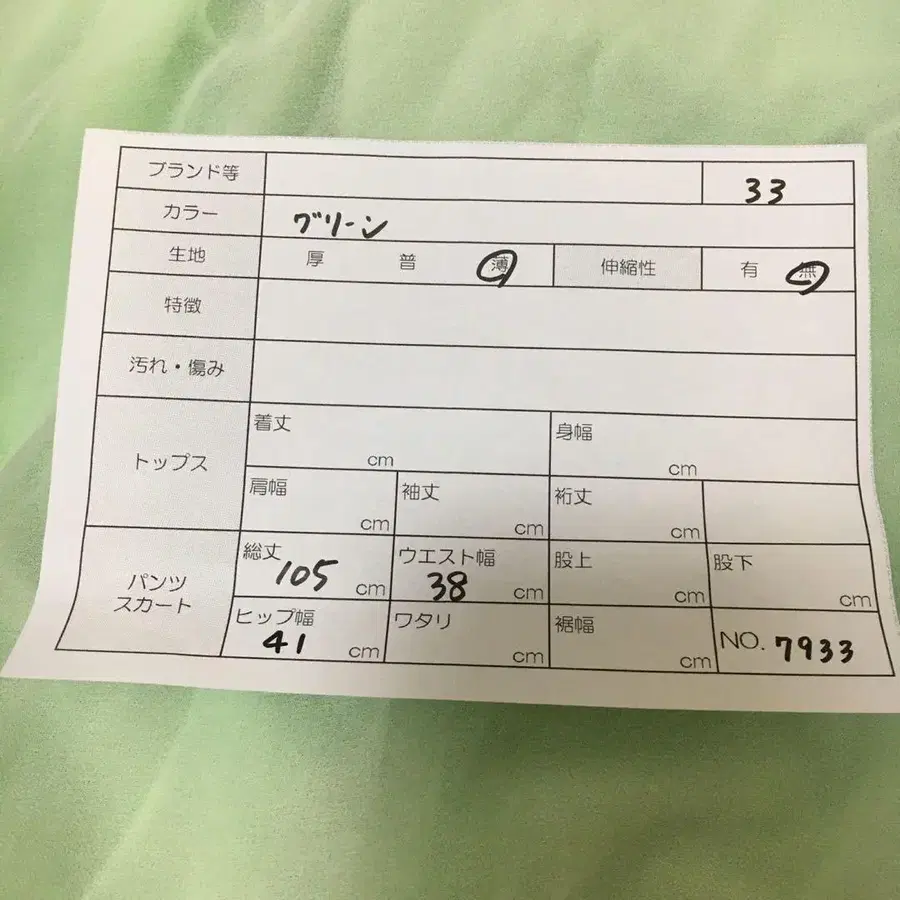 ブランド等 33
カラー グリーン
生地 厚 普 薄 伸縮性 有 無
特徴
汚れ・傷み
トップス
着丈 cm 身幅 cm
肩幅 cm 袖丈 cm 裄丈 cm
パンツ
スカート
総丈 105 cm ウエスト幅 38 cm 股上 cm 股下 cm
ヒップ幅 41 cm ワタリ cm 裾幅 cm NO. 7933